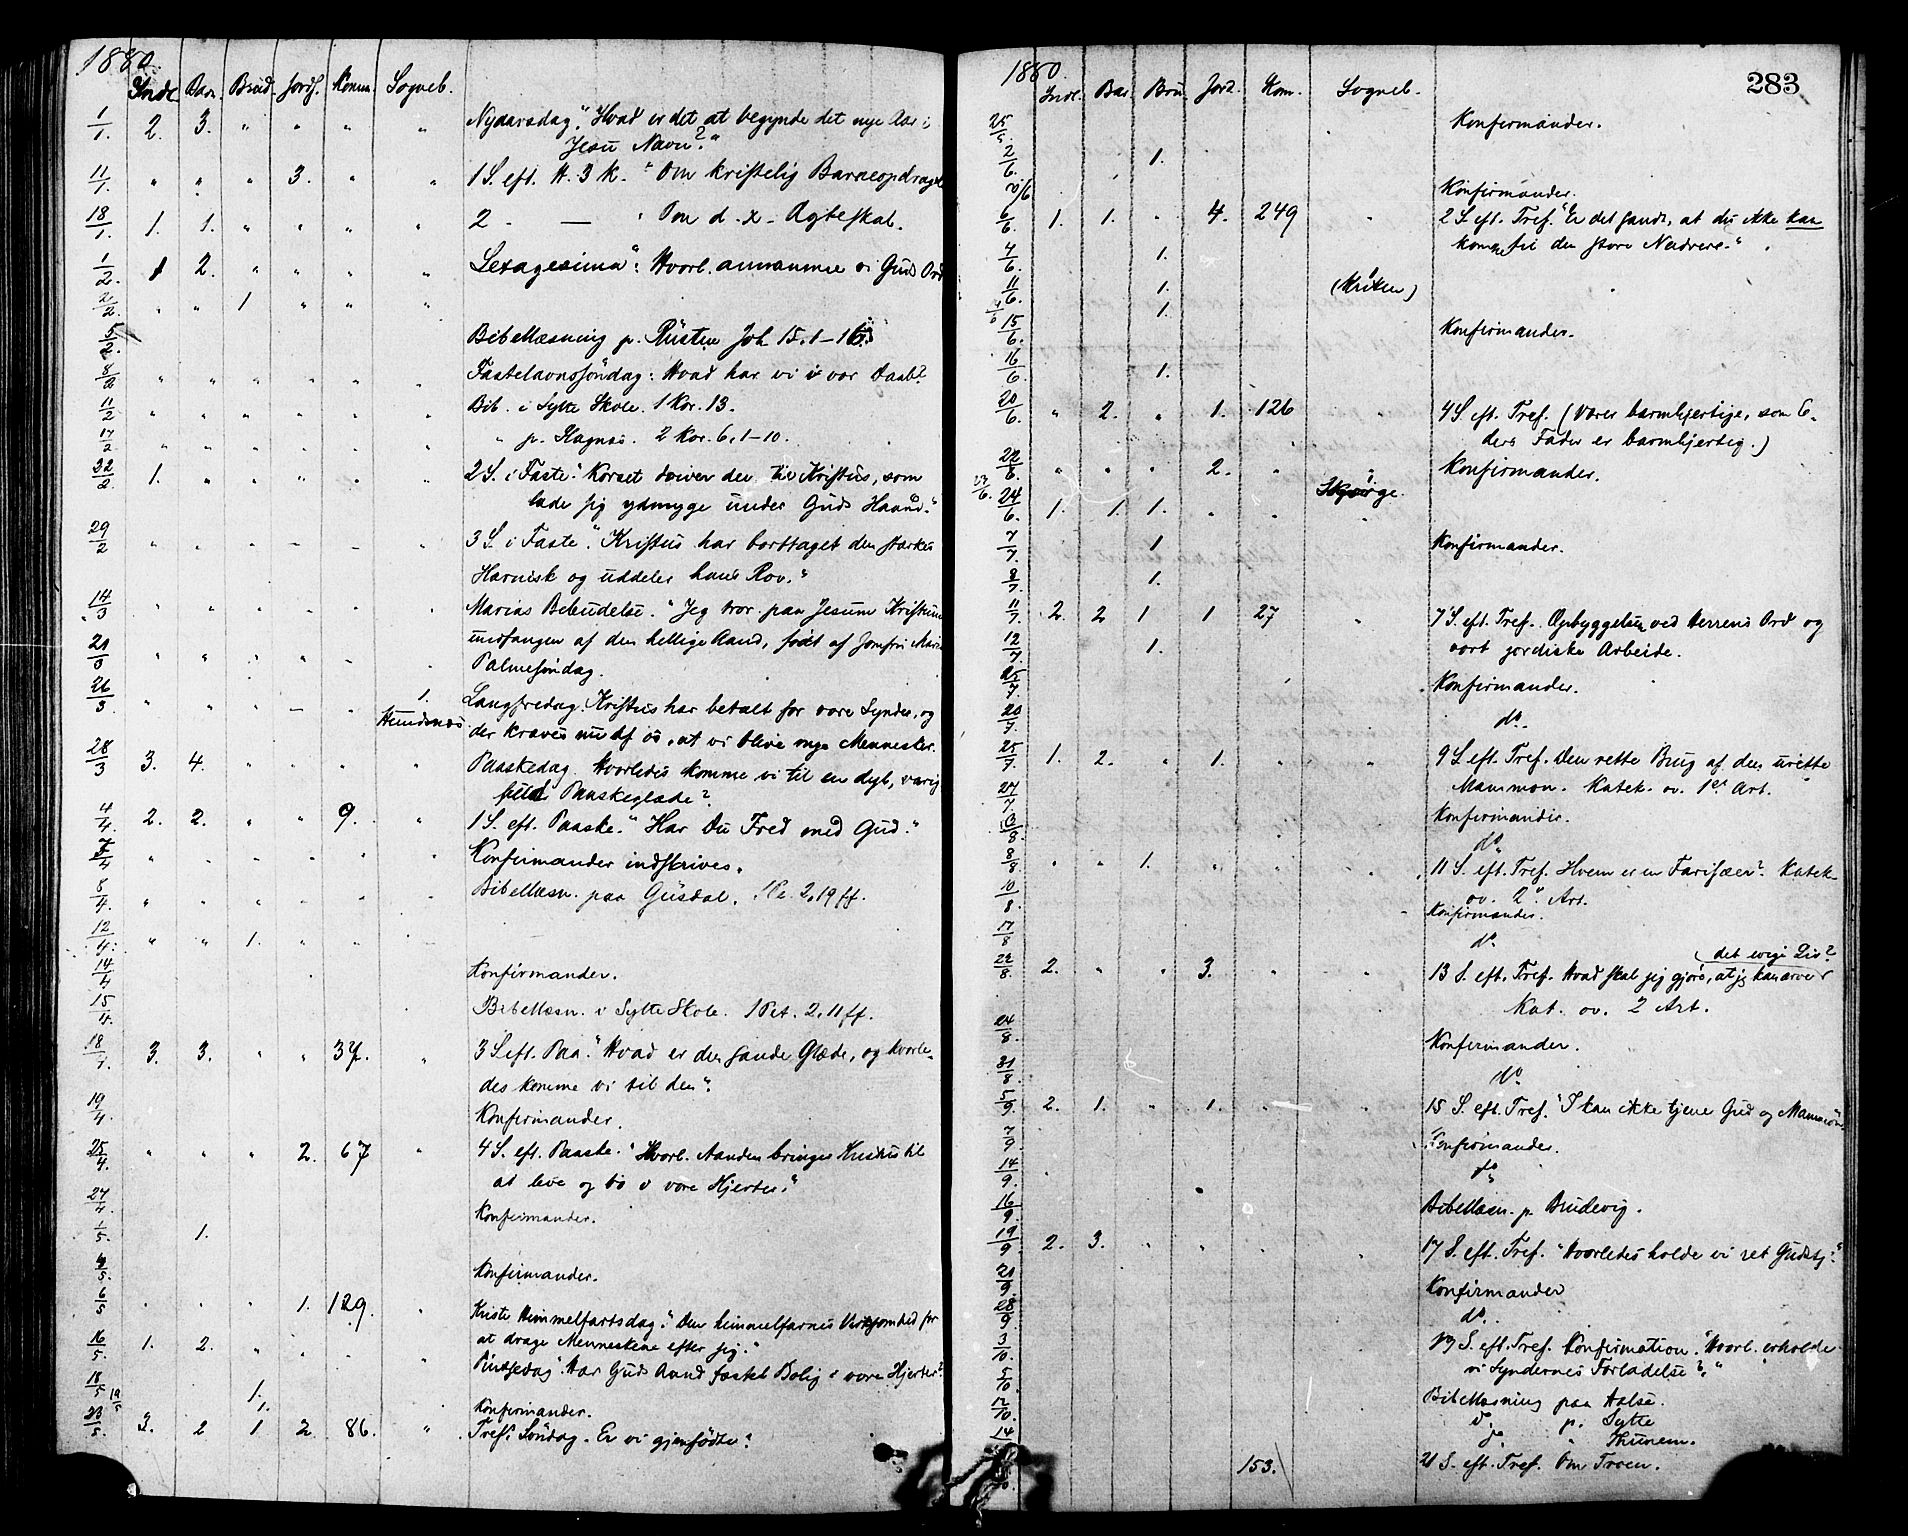 1880.
Indl. Barn. Brud. Jordf. Komm. Sogneb.
1/1. 2. 3. " " " " Nyaarsdag. "Hvad er det at begynde det nye Aar i
Jesu Navn?"
11/1. " " " 3. " " 1 S. eft. H. 3 K. " Om kristelig Barneopdragelse
18/1. 1. 1. " " " " 2 - — " Om d. x. Ægteskab.
1/2. 1 2. " " " " Sexagesima": Hvorl. annamme vi Guds Ord
2/2. " " 1 " " "
5/2. Bibellæsning p. Rusten Joh 15.1-16.
8/2 " " " " " " Fastelavnssöndag: Hvad har vi i vor Daab?
11/2 " " " " " " Bib. i Sylte Skole. 1 Kor. 13.
17/2 " " " " " " " p. Hagnæs. 2 Kor. 6, 1-10.
22/2. 1. " " " " " 2 S. i Faste." Korset driver dem til Kristus, som
lade sig ydmyge under Guds Haand."
29/2 " " " - - " 3 S. i Faste". Kristus har borttaget den stærkes
Harnisk og uddeler hans Rov."
14/3 " " " " " " Marias Bebudelse. "Jeg tror paa Jesum Kristum
undfangen af den hellige Aand, født af Jomfru Maria
21/3 " " " " " Palmesöndag.
26/3 " " " - " 1. Langfredag. Kristus har betalt for vore Synder, og
Hundsnes der kræves nu af os, at vi blive nye Mennesker.
28/3 3. 4. " " " " Paaskedag. Hvorledes komme vi til en dyb, varig
Paaskeglæde?
4/4. 2. 2. " " 9. " 1 S. eft. Paaske." Har Du Fred med Gud."
7/4 " " " " " " Konfirmander indskrives.
8/4. " " " " " " Bibellæsn. paa Gusdal. 1 Pe. 2,19 ff.
12/4. " " 1. " " "
14/4 Konfirmander.
15/4. Bibellæsn. i Sylte Skole. 1 Pet. 2,11 ff.
18/4. 3. 3. " " 37. " 3 S eft. Paa." Hvad er den sande Glæde, og hvorle-
des komme vi til den".
19/4. Konfirmander.
25/4. " " " 2. 67 " 4 S. eft. Paaske. "Hvorl. Aanden bringer Kristus til
at leve og bo i vore Hjerter."
27/4. Konfirmander.
1/5. 1.
4/5. Konfirmander.
6/5 " " " 1. 129. " Kristi Himmelfartsdag." Den himmelfarnes Virksomhed for
at drage Menneskene efter sig."
16/5. 1. 2. " " " " Pintsedag "Har Guds Aand fæstet Bolig i vore Hjerter?
18/5 19/5 1. 1. Konfirmander.
23/5. 3. 2 1 2. 86. " Tref. Söndag. Er vi gjenfödte?
1880.
283
Indl. Bar. Bru. Jord. Kom. Sogneb.
25/5. Konfirmander.
2/6. 1.
Konfirmander.
6/6. 1. 1. " 4. 249 " 2 S. eft. Tref. "Er det sandt, at du ikke kan
komme til den store Nadvere."
4/6. 1.
11/6. 1. (Mriken)
1.
15/6. Konfirmander.
16/6. 1.
20/6. " 2. " 1. 126 " 4 S. eft. Tref. (Værer barmhjertige, som E-
ders Fader er barmhjertig.)
22/6. " " " 2. " " Konfirmander.
23/6. Skorge.
24/6. 1. 1. 1. " "
7/7. 1 Konfirmander.
8/7 1.
11/7. 2. 2 1 1 27 " 7 S. eft. Tref. Opbyggelsen ved Herrens Ord og
vort jordiske Arbeide.
12/7. 1.
Konfirmander.
20/7. do.
25/7. 1. 2. " 1. " " 9 S. eft. Tref. Den rette Brug af den urette
Mammon. Katek. ov. 1st Art.
27/7 Konfirmander.
do
8/8. " " 1. " " " 11 S. eft. Tref. Hvem er en Farisæer? Katek.
ov. 2. Art.
10/8. Konfirmander.
17/8 do.
22/8. 2. " " 3. " " 13 S. eft. Tref. Hvad skal jeg gjöre, at jeg kan arve
det evige Liv?
Kat. ov. 2 Art.
24/8. Konfirmander.
31/8. do.
5/9. 2. 1. " 1. " " 15 S. eft. Tref. "I kan ikke tjene Gud og Mammon"
7/9. Konfirmander.
14/9. do.
16/9. Bibellæsn. p. Brudevig.
19/9 2. 3. " " " " 17 S. eft. Tref. "Hvorledes holde vi ret Gudstj."
21/9. Konfirmander
28/9. do.
3/10. 19 S. eft. Tref. Konfirmation. "Hvorl. erholde
vi Syndernes Forladelse?"
5/10 Bibellæsning paa Halse.
12/10. d. p. Sylte
14/ d. " Thunem.
153. 21 S. eft. Tref. Om Troen.